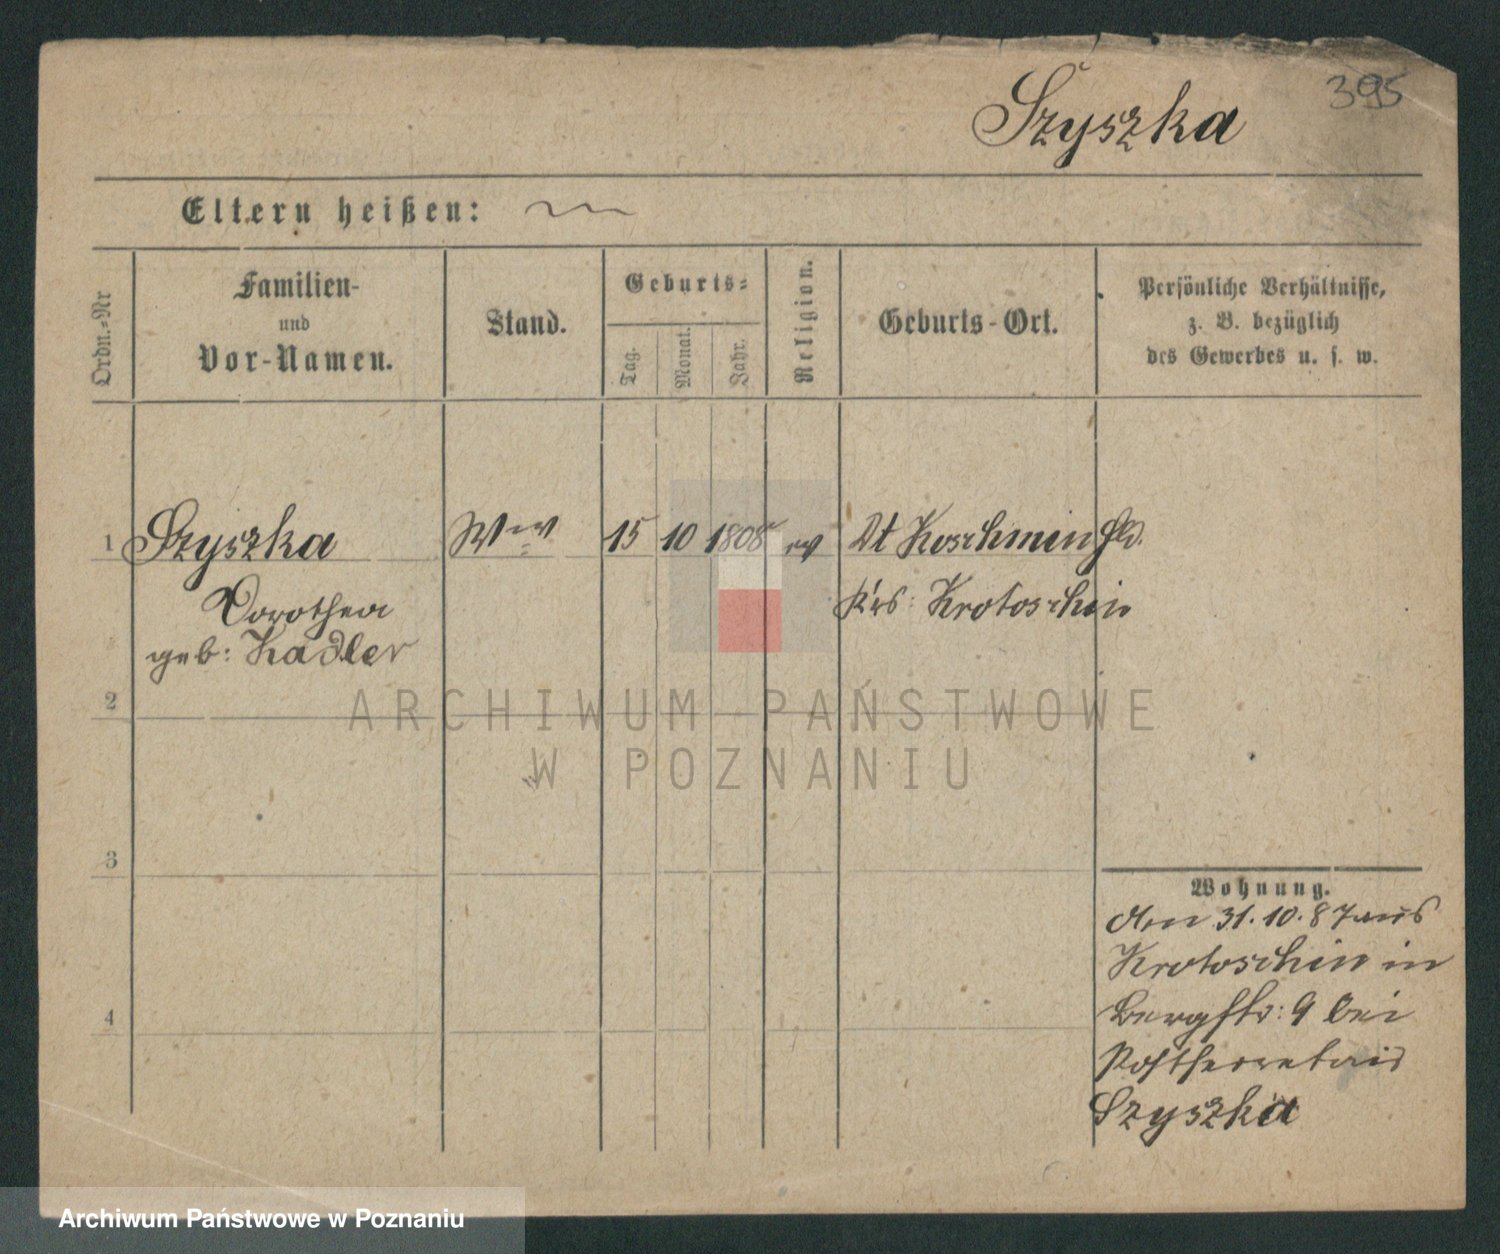 Szyszka
395
Eltern heißen:
Ordn.=Nr
Familien-
und
Vor-Namen.
Stand.
Geburts=
Tag.
Monat.
Jahr.
Religion.
Geburts-Ort.
Persönliche Verhältnisse,
z. B. bezüglich
des Gewerbes u. s. w.
1 Szyszka Wwe 15 10 1808 ev Dt Koschmin
Dorothea Krs: Krotoschin
geb: Kadler
2
3
4
Wohnung.
Am 31.10.87 aus
Krotoschin in
Bergstr: 9 bei
Postsecretair
Szyszka
ARCHIWUM PAŃSTWOWE
W POZNANIU
Archiwum Państwowe w Poznaniu